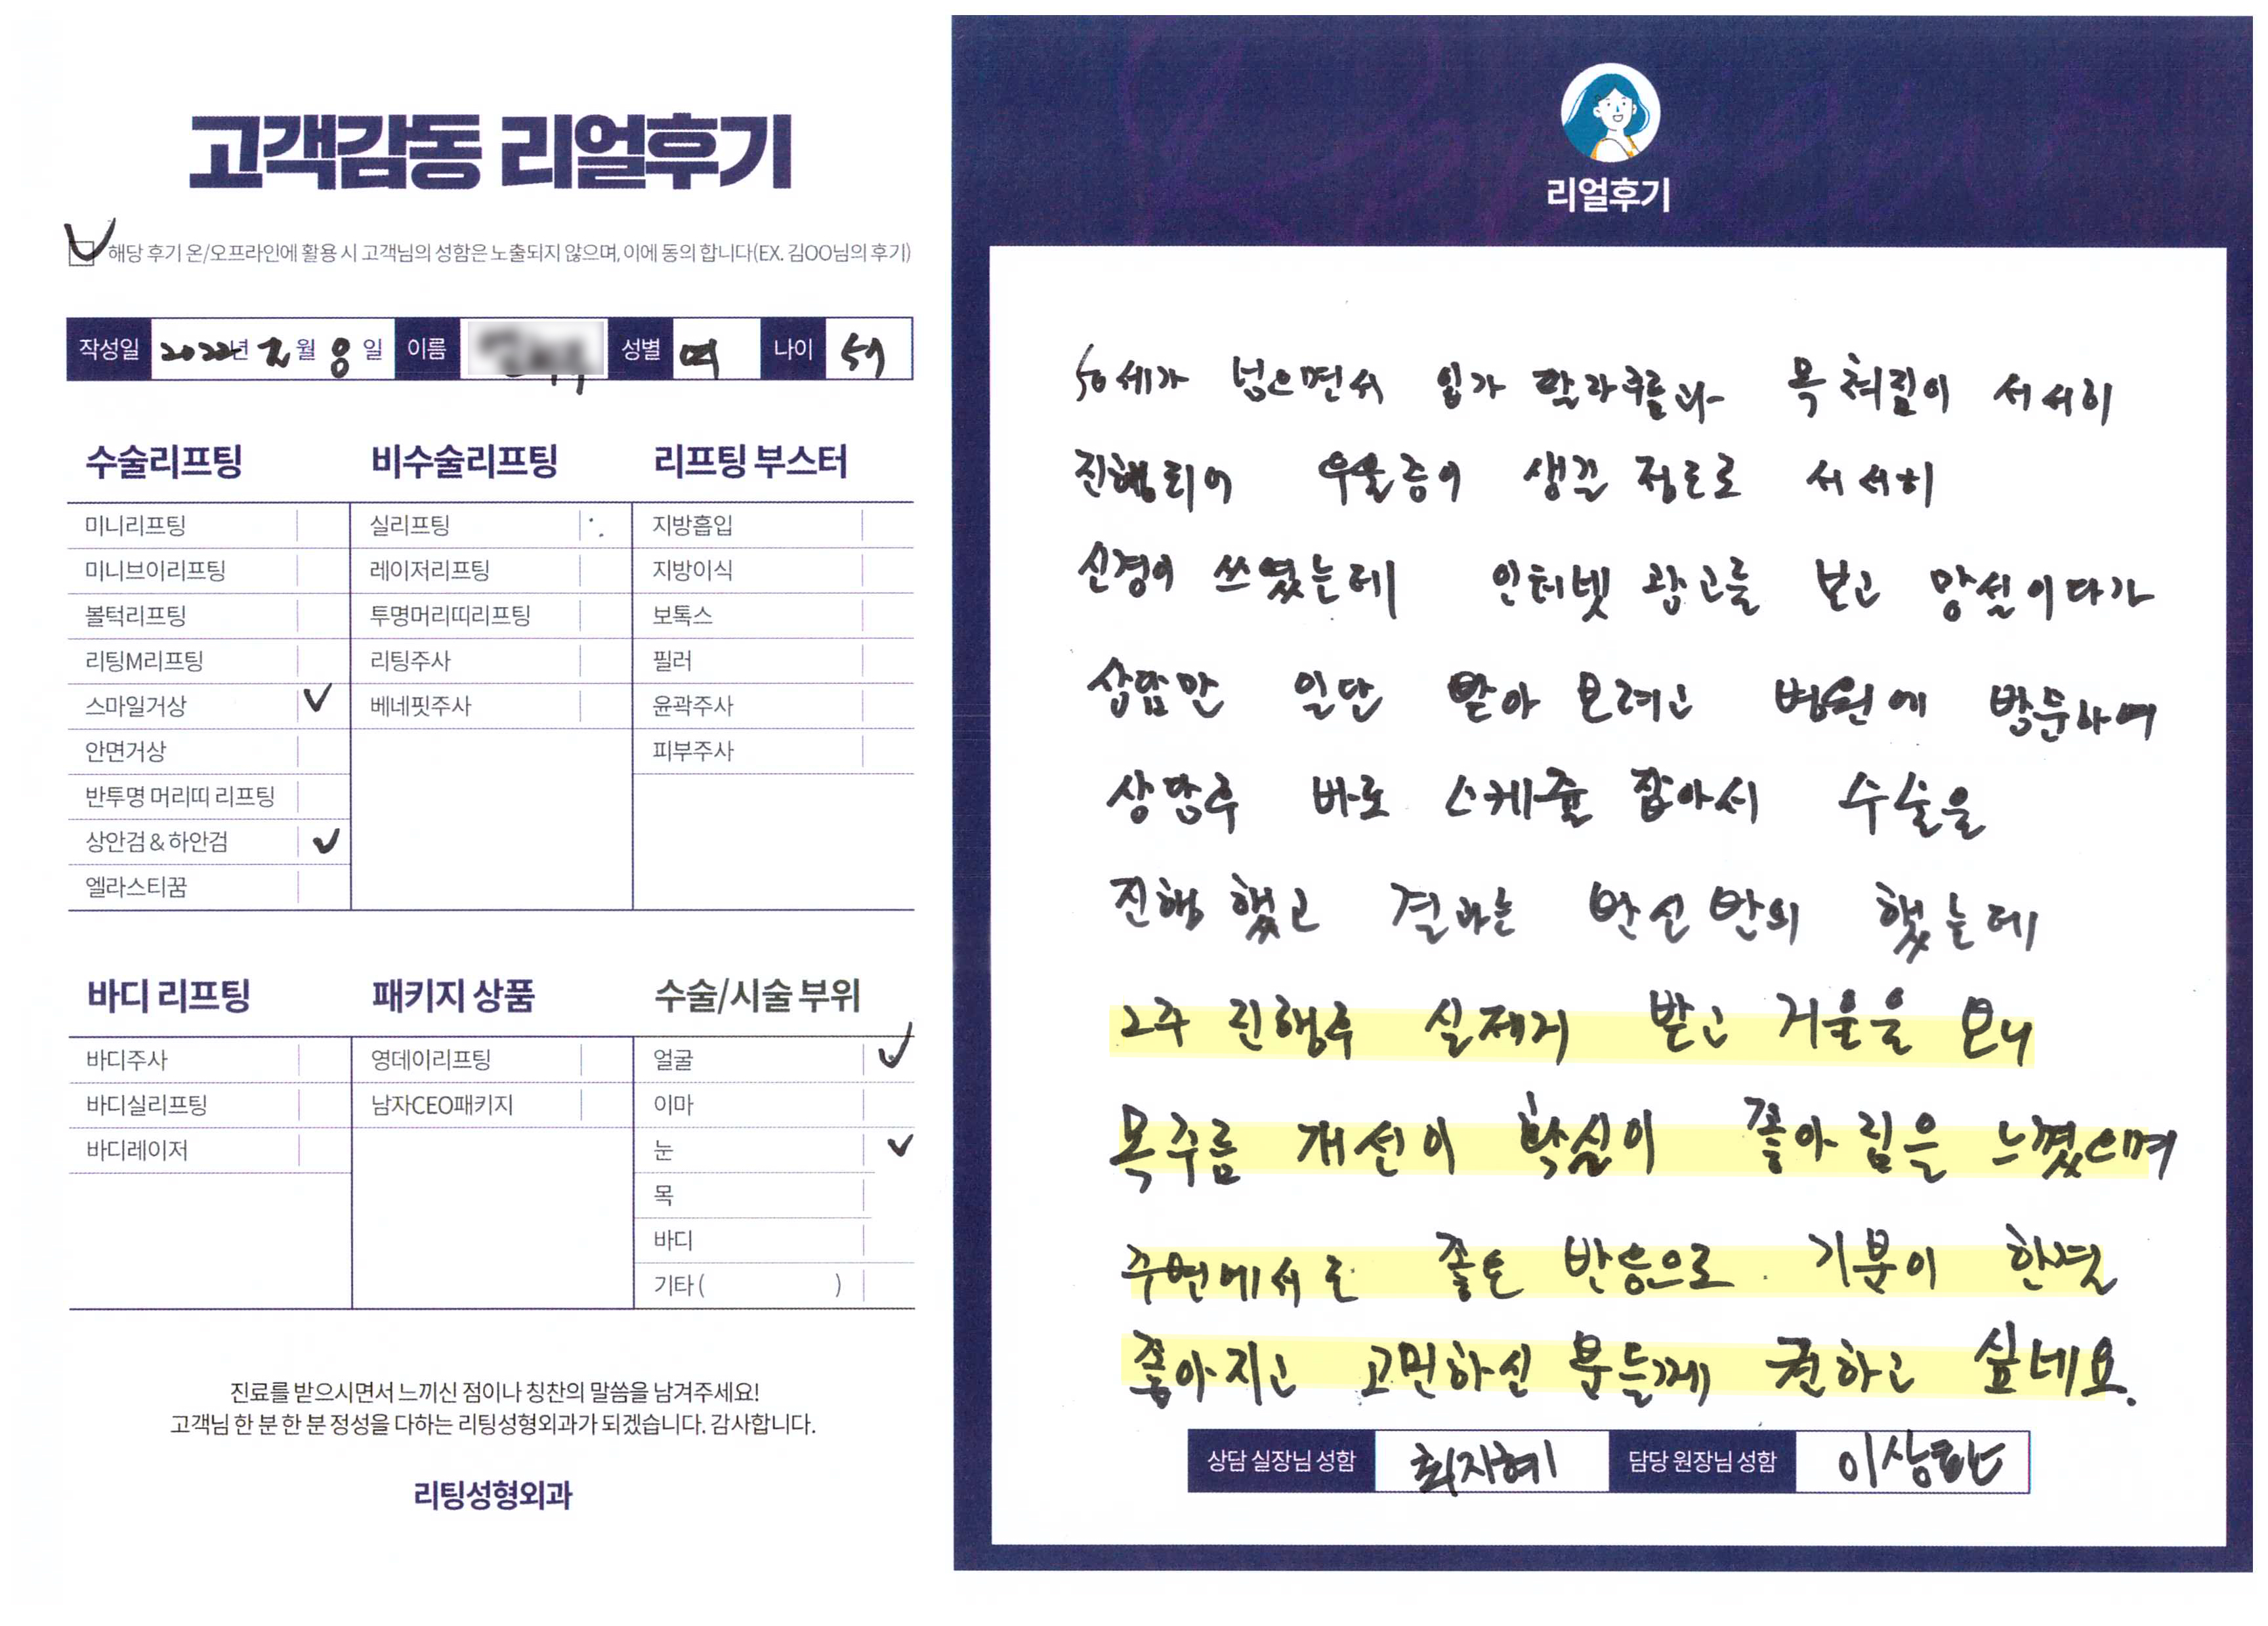 고객감동 리얼후기
해당 후기 온/오프라인에 활용 시 고객님의 성함은 노출되지 않으며, 이에 동의 합니다(EX. 김OO님의 후기)
작성일 2022년 월 8일 이름 성별 여 나이
수술리프팅
미니리프팅
미니브이리프팅
볼턱리프팅
리팅M리프팅
스마일거상
안면거상
반투명 머리띠 리프팅
상안검 & 하안검
엘라스티꿈
비수술리프팅
실리프팅
레이저리프팅
투명머리띠리프팅
리팅주사
베네핏주사
리프팅 부스터
지방흡입
지방이식
보톡스
필러
윤곽주사
피부주사
바디 리프팅
바디주사
바디실리프팅
바디레이저
패키지 상품
영데이리프팅
남자CEO패키지
수술/시술 부위
얼굴
이마
눈
목
바디
기타 ( )
진료를 받으시면서 느끼신 점이나 칭찬의 말씀을 남겨주세요!
고객님 한 분 한 분 정성을 다하는 리팅성형외과가 되겠습니다. 감사합니다.
리팅성형외과
리얼후기
50세가 넘으면서 입가 팔자주름과 목 쳐짐이 서서히
진행되어 우울증이 생길 정도로 서서히
신경이 쓰였는데 인터넷 광고를 보고 망설이다가
상담만 일단 받아 보려고 병원에 방문하여
상담후 바로 스케쥴 잡아서 수술을
진행 했고 결과는 반신반의 했는데
2주 진행후 실제거 받고 거울을 보니
목주름 개선이 확실이 좋아짐을 느꼈으며
주변에서도 좋은 반응으로 기분이 한결
좋아지고 고민하신 분들께 권하고 싶네요.
상담 실장님 성함 최지혜 담당 원장님 성함